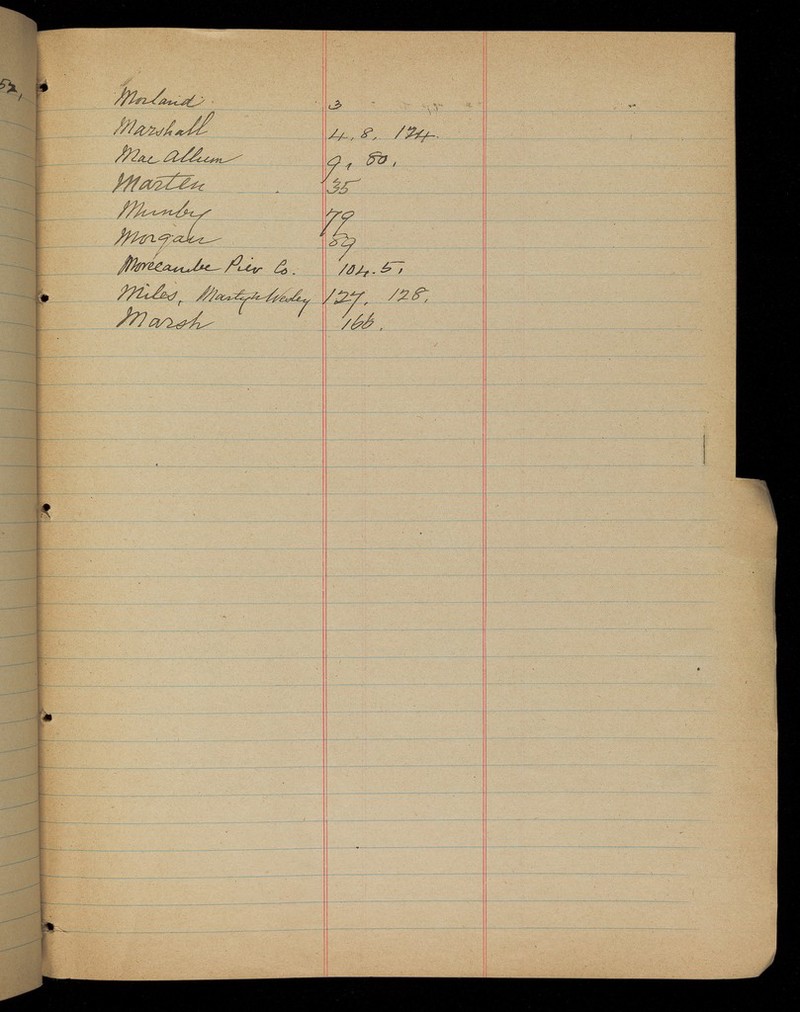 52,
Morland 3
Marshall 4. 8. 124.
Mac Allum 9, 80.
Marten 35
Munby 79
Morgan 89
Morecambe Pier Co. 104.5.
Miles, Martyn Wesley 127. 128.
Marsh 166.